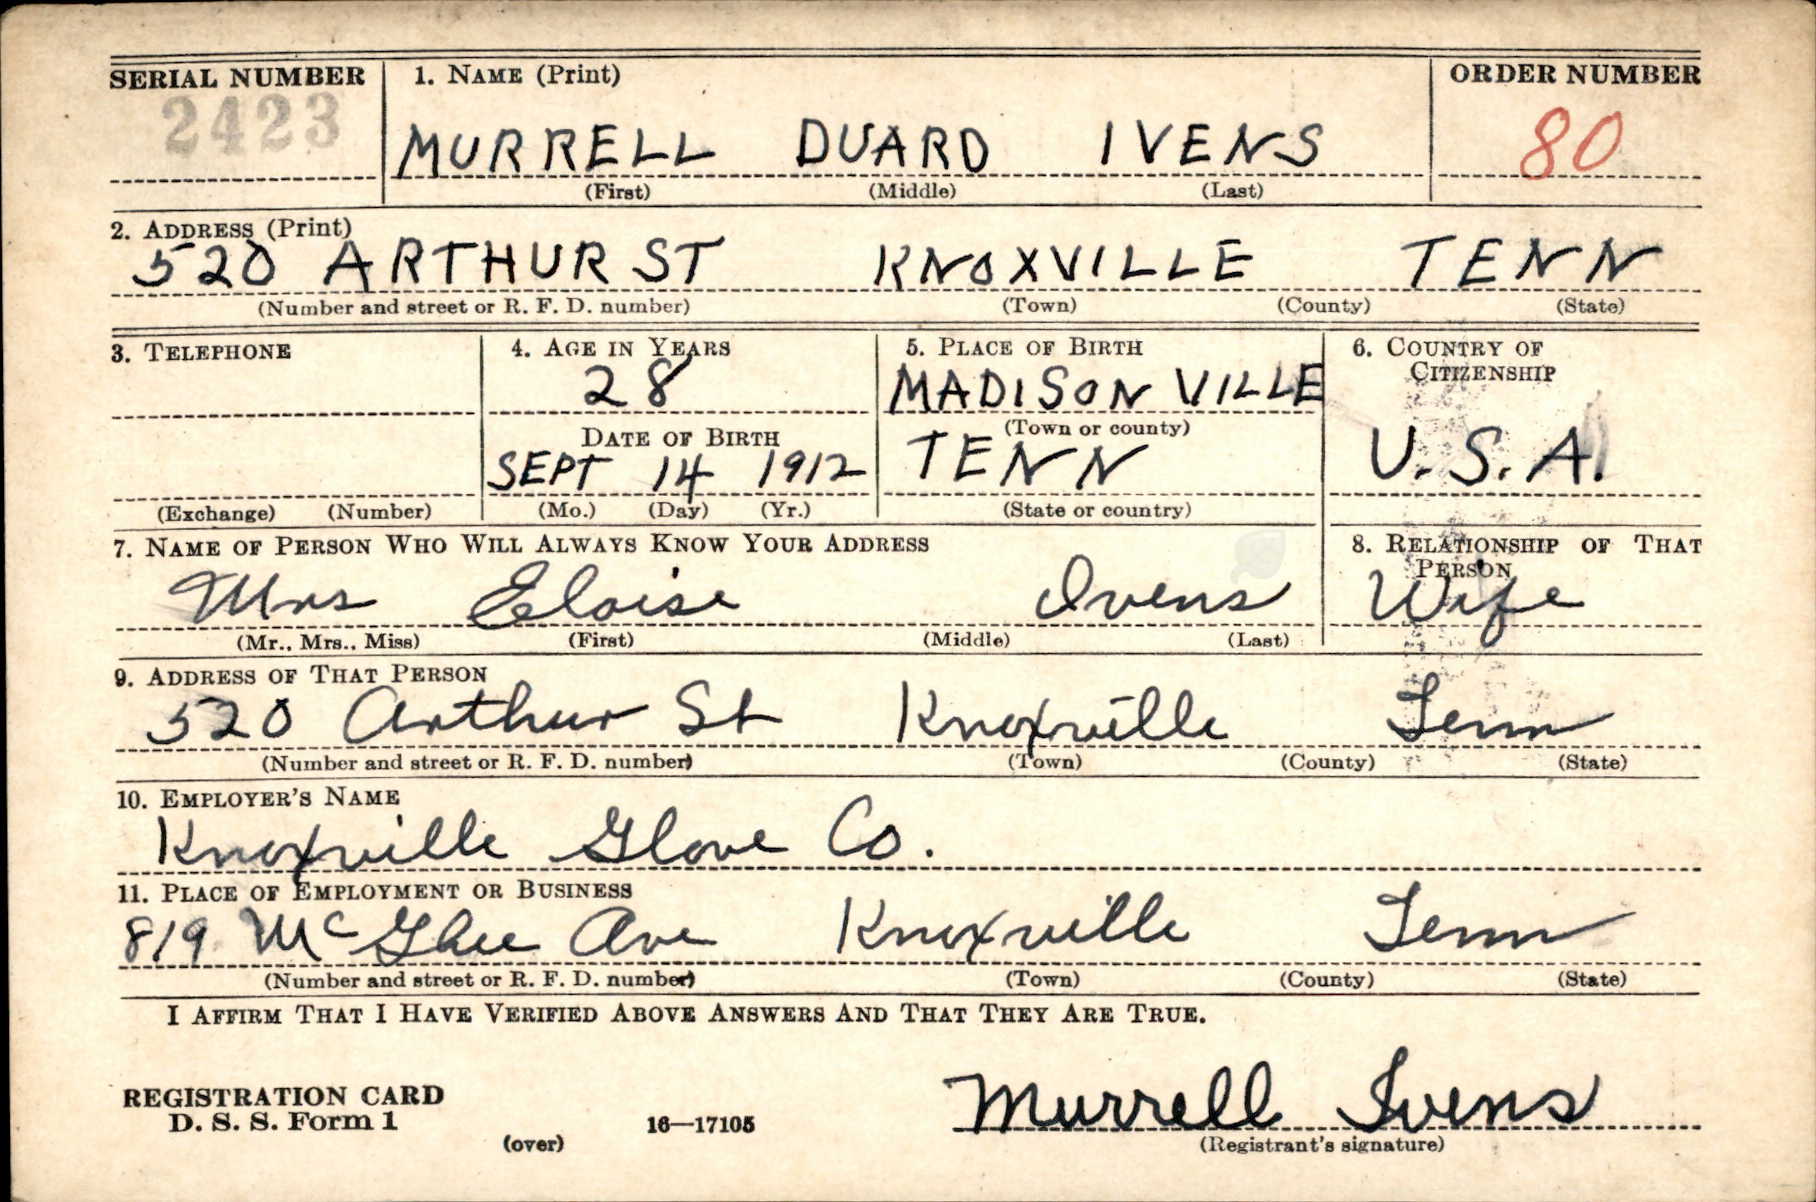 SERIAL NUMBER 1. NAME (Print) ORDER NUMBER
2423 MURRELL DUARD IVENS 80
(First) (Middle) (Last)
2. ADDRESS (Print)
520 ARTHUR ST KNOXVILLE TENN
(Number and street or R. F. D. number) (Town) (County) (State)
3. TELEPHONE 4. AGE IN YEARS 5. PLACE OF BIRTH 6. COUNTRY OF
CITIZENSHIP
28 MADISONVILLE
DATE OF BIRTH (Town or county)
SEPT 14 1912 TENN U.S.A.
(Exchange) (Number) (Mo.) (Day) (Yr.) (State or country)
7. NAME OF PERSON WHO WILL ALWAYS KNOW YOUR ADDRESS 8. RELATIONSHIP OF THAT
PERSON
Mrs Eloise Ivens Wife
(Mr., Mrs., Miss) (First) (Middle) (Last)
9. ADDRESS OF THAT PERSON
520 Arthur St Knoxville Tenn
(Number and street or R. F. D. number) (Town) (County) (State)
10. EMPLOYER'S NAME
Knoxville Glove Co.
11. PLACE OF EMPLOYMENT OR BUSINESS
819 McGhee Ave Knoxville Tenn
(Number and street or R. F. D. number) (Town) (County) (State)
I AFFIRM THAT I HAVE VERIFIED ABOVE ANSWERS AND THAT THEY ARE TRUE.
REGISTRATION CARD Murrell Ivens
D. S. S. Form 1 (over) 16—17105 (Registrant's signature)